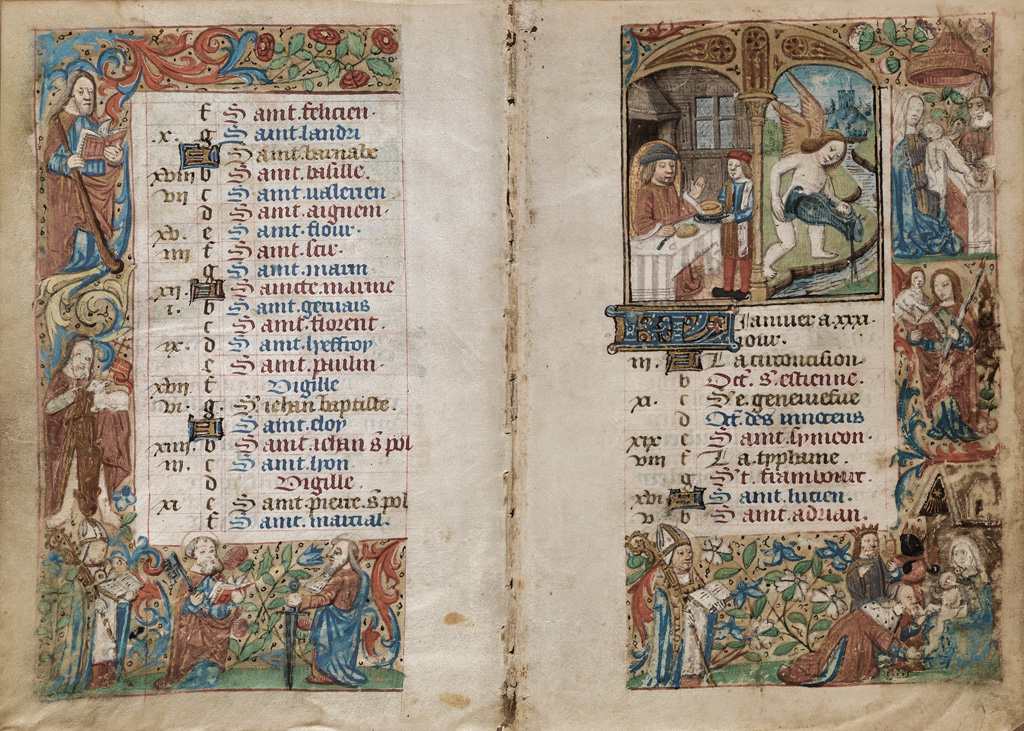 f Saint.felicien.
x. g Saint landri
A Saint.barnabe
xviii b Saint.basille.
vii c Saint valerien
d Saint.aignein.
xv. e Saint.flour.
iiii f Saint.scir.
g Saint.marin
xii. A Saincte.marine
i. b Saint.geruais
c Saint.florent.
ix. d Saint.lyeffroy
e Saint.paulin.
xvii f Vigille
vi. g. S'iehan.baptiste.
A Saint.eloy
xiiii. b Saint.iehan s pol
iii. c Saint.lyon.
d Vigille.
xi e Saint.pierre.s pol
f Saint.marcial.
Januier a.xxxi.
iour.
iii. A La circoncision
b Oct. s'estienne.
xi. c S'e.geneuiefue
d Oct.des innocens
xix e Saint.symeon.
viii f La.typhaine.
g S't.frambourt.
xvi A Saint.lucien.
v b Saint.adrian.